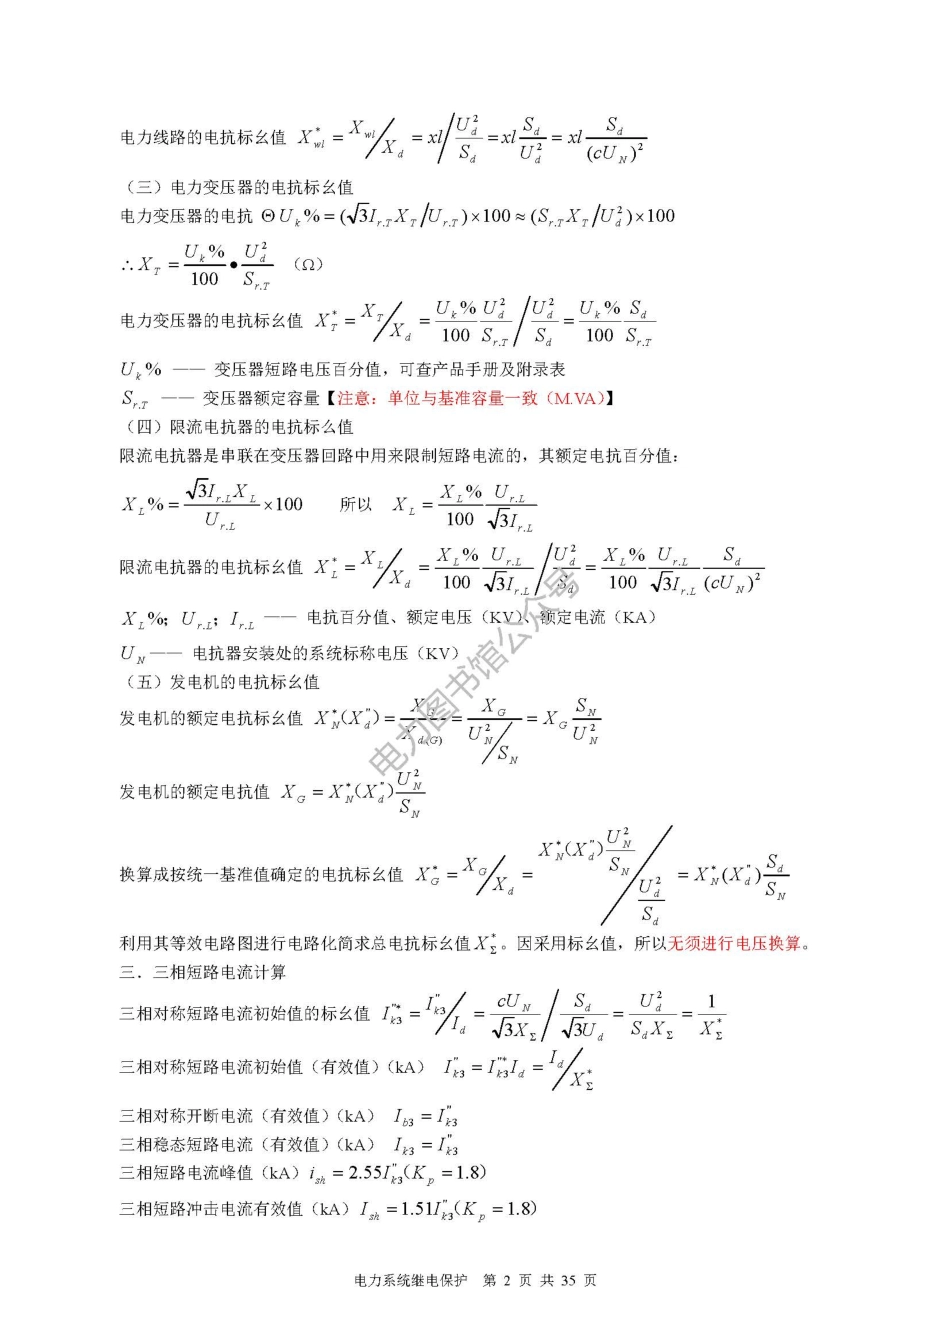 电力线路的电抗标幺值 X*_wl = X_wl/X_d = xl/(U_d²/S_d) = xl S_d/U_d² = xl S_d/(cU_N)²
（三）电力变压器的电抗标幺值
电力变压器的电抗 Θ U_k% = (√3I_r.T X_T/U_r.T)×100 ≈ (S_r.T X_T/U_d²)×100
∴ X_T = U_k%/100 • U_d²/S_r.T （Ω）
电力变压器的电抗标幺值 X*_T = X_T/X_d = U_k%/100 U_d²/S_r.T / (U_d²/S_d) = U_k%/100 S_d/S_r.T
U_k% —— 变压器短路电压百分值，可查产品手册及附录表
S_r.T —— 变压器额定容量【注意：单位与基准容量一致（M.VA）】
（四）限流电抗器的电抗标么值
限流电抗器是串联在变压器回路中用来限制短路电流的，其额定电抗百分值：
X_L% = √3I_r.L X_L/U_r.L ×100 所以 X_L = X_L%/100 U_r.L/√3I_r.L
限流电抗器的电抗标幺值 X*_L = X_L/X_d = X_L%/100 U_r.L/√3I_r.L / (U_d²/S_d) = X_L%/100 U_r.L/√3I_r.L S_d/(cU_N)²
X_L%；U_r.L；I_r.L —— 电抗百分值、额定电压（KV）、额定电流（KA）
U_N —— 电抗器安装处的系统标称电压（KV）
（五）发电机的电抗标幺值
发电机的额定电抗标幺值 X*_N(X"_d) = X_G/X_d(G) = X_G/(U_N²/S_N) = X_G S_N/U_N²
发电机的额定电抗值 X_G = X*_N(X"_d) U_N²/S_N
换算成按统一基准值确定的电抗标幺值 X*_G = X_G/X_d = X*_N(X"_d) U_N²/S_N / (U_d²/S_d) = X*_N(X"_d) S_d/S_N
利用其等效电路图进行电路化简求总电抗标幺值 X*_Σ。因采用标幺值，所以无须进行电压换算。
三．三相短路电流计算
三相对称短路电流初始值的标幺值 I"*_k3 = I"_k3/I_d = cU_N/√3X_Σ / (S_d/√3U_d) = U_d²/S_d X_Σ = 1/X*_Σ
三相对称短路电流初始值（有效值）（kA） I"_k3 = I"*_k3 I_d = I_d/X*_Σ
三相对称开断电流（有效值）（kA） I_b3 = I"_k3
三相稳态短路电流（有效值）（kA） I_k3 = I"_k3
三相短路电流峰值（kA）i_sh = 2.55I"_k3(K_p = 1.8)
三相短路冲击电流有效值（kA）I_sh = 1.51I"_k3(K_p = 1.8)
电力图书馆公众号
电力系统继电保护 第 2 页 共 35 页